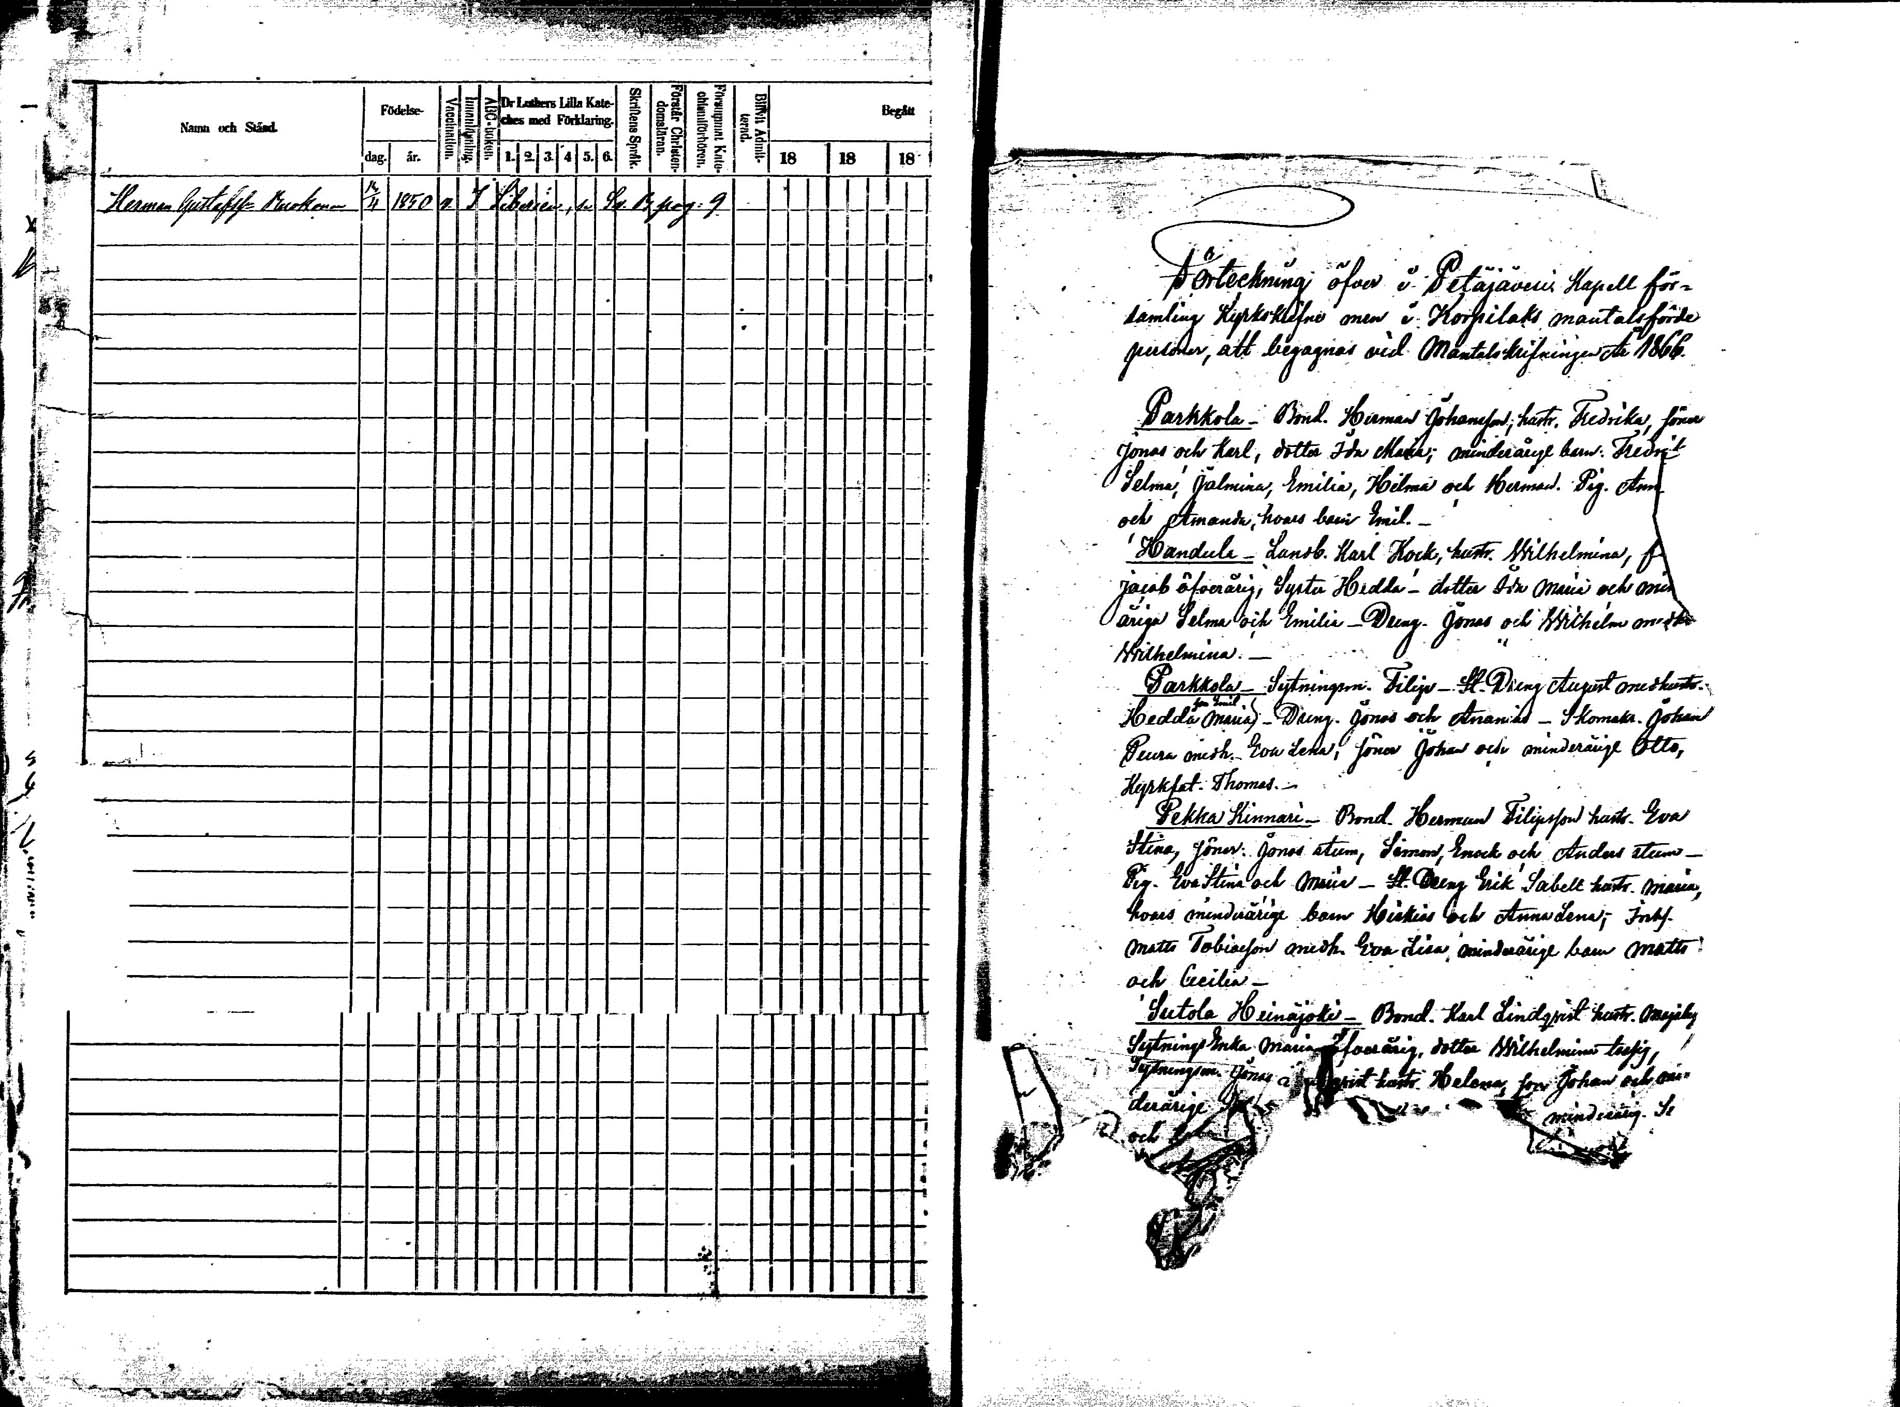 Namn och Stånd.
Födelse-
dag.
år.
Vaccination.
Innanläsning.
ABC-boken.
Dr Luthers Lilla Kate-
ches med Förklaring.
1. 2. 3. 4 5. 6.
Skriftens Språk.
Förstår Christen-
domsläran.
Försummat Kate-
chismiförhören.
Blifvit Admit-
terad.
Begått
18 18 18
Herman Gustafss 4 1850 v. I Siberien, se pag. 9
Förteckning öfver i Petäjävesi Kapell för-
samling Kyrkskrifne men i Korpilaks mantalsförde
personer, att begagnas vid Mantalskrifningen År 1866.
Parkkola – Bond. Herman Johansson, hustr. Fredrika, söner
Jonas och Karl, dotter Ida Maria; minderårige barn: Fredrik
Selma, Jalmina, Emilia, Hilma och Herman. Pig. Ann
och Amanda, hvars barn Emil. –
Handula – Landb. Karl Kock, hustr. Wilhelmina, f
Jacob öfverårig, Syster Hedda – dotter Ida Maria och min
åriga Selma och Emilia – Dreng. Jonas och Wilhelm med h
Wilhelmina. –
Parkkola – Sytningsm. Filip – St. Dreng August med hustr.
son Emil
Hedda Maria – Dreng. Jonas och Ananias – Skomak. Johan
Peura medh. Eva Lena, söner Johan och minderårige Otto,
Kyrkfat. Thomas. –
Pekka Kinnari – Bond. Herman Filipsson hustr. Eva
Stina, söner: Jonas stum, Simon, Enock och Anders stum –
Pig. Eva Stina och Maria – St. Dreng Erik Sabell hustr. Maria,
hvars minderårige barn Hiskias och Anna Lena; Inhs.
Matts Tobiasson medh. Eva Lisa, minderårige barn Matts
och Cecilia –
Sutola Heinäjoki – Bond. Karl Lindqvist hustr.
Sytnings Enka Maria öfverårig, dotter Wilhelmina
Sytningsm. Jonas hustr. Helena, son Johan och min-
derårige minderårig. Se
och